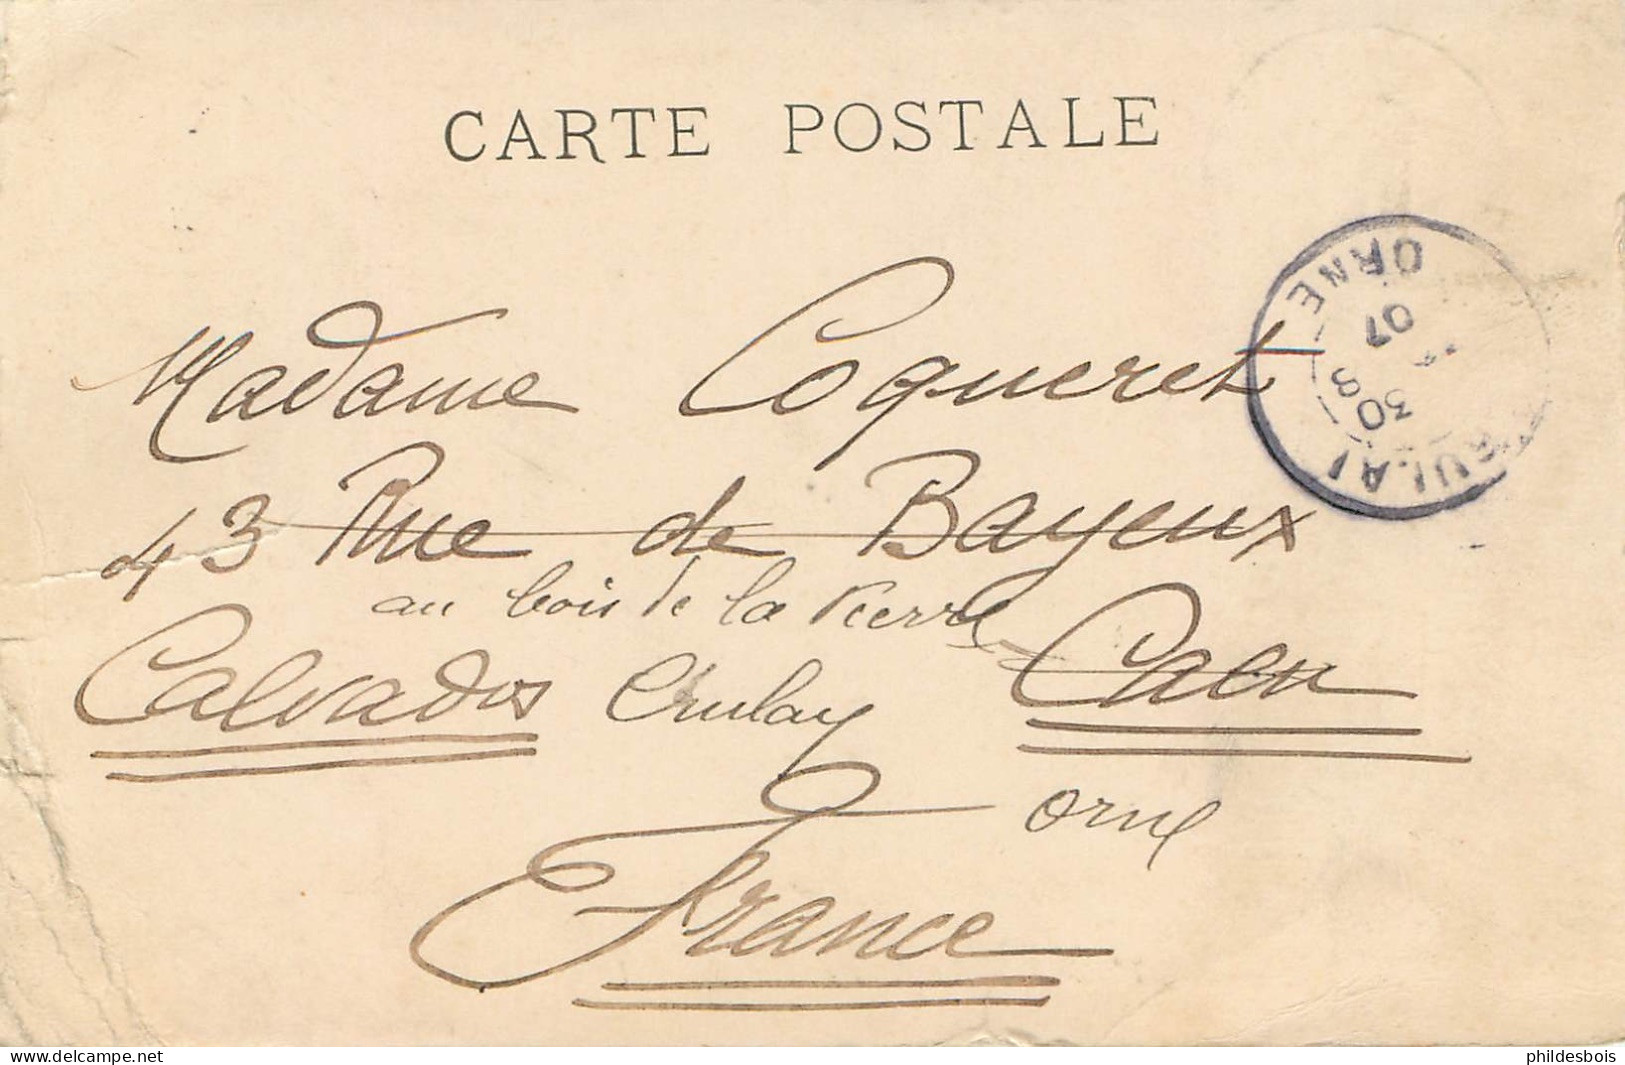 CARTE POSTALE
ORNE
07
30 8
Madame Coqueret
43 Rue de Bayeux
au bois de la Pierre
Calvados Crulay Caen
Orne
France
delcampe.net
phildesbois